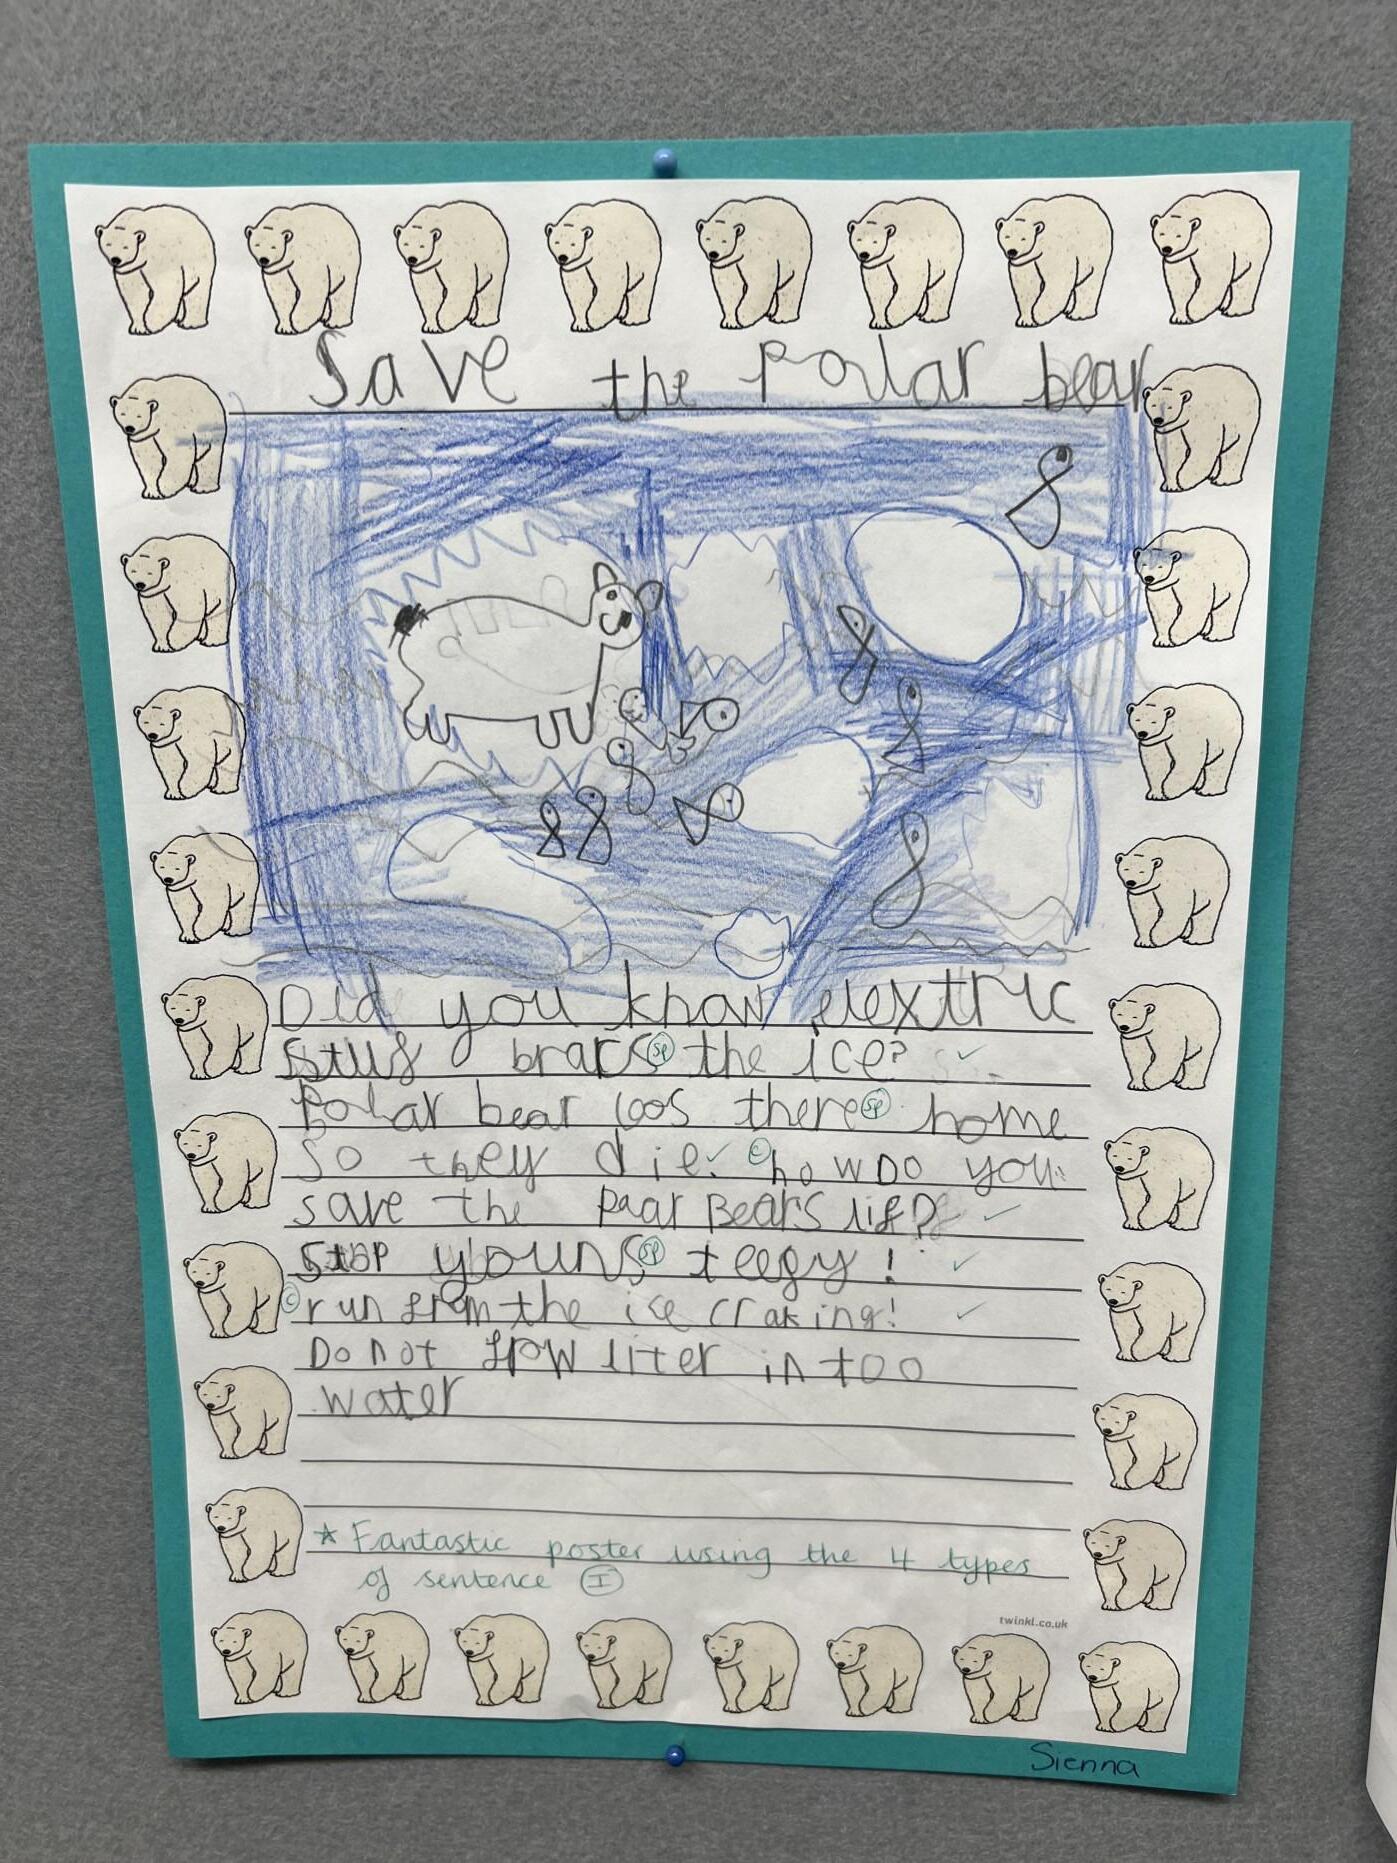 Save the Polar bear
Did you know elextric
stuf bracs sp the ice?
Polar bear loos there sp home
so they die. c how Do you
save the paar Bears lif?
Stop sp teegy!
c run from the ice craking!
Do not frow liter in too
water
★ Fantastic poster using the 4 types
of sentence I
twinkl.co.uk
Sienna